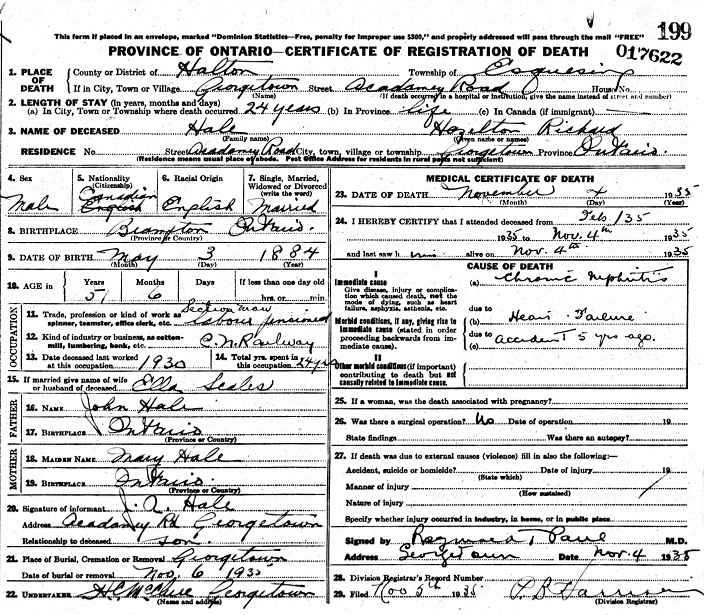 199
This form if placed in an envelope, marked "Dominion Statistics—Free, penalty for improper use $300," and properly addressed will pass through the mail "FREE"
PROVINCE OF ONTARIO—CERTIFICATE OF REGISTRATION OF DEATH
017622
1. PLACE OF DEATH
County or District of Halton Township of Esquesing
If in City, Town or Village Georgetown Street Acadamy Road House No.
(Name) (If death occurred in a hospital or institution, give the name instead of street and number)
2. LENGTH OF STAY (in years, months and days)
(a) In City, Town or Township where death occurred 24 years (b) In Province life (c) In Canada (if immigrant)
3. NAME OF DECEASED Hale Hazelton Richard
(Family name) (Given name or names)
RESIDENCE No. Street Acadamy Road City, town, village or township Georgetown Province Ontario.
(Residence means usual place of abode. Post Office Address for residents in rural parts not sufficient)
4. Sex
Male
5. Nationality (Citizenship)
Canadian
English
6. Racial Origin
English
7. Single, Married, Widowed or Divorced (write the word)
Married
8. BIRTHPLACE Brampton Ontario.
(Province or Country)
9. DATE OF BIRTH May 3 1884
(Month) (Day) (Year)
10. AGE in Years Months Days If less than one day old
51 6 hrs. or min.
OCCUPATION
11. Trade, profession or kind of work as spinner, teamster, office clerk, etc. Section man labour pensioned
12. Kind of industry or business, as cotton-mill, lumbering, bank, etc. C.N. Railway
13. Date deceased last worked at this occupation 1930
14. Total yrs. spent in this occupation 24 yrs
15. If married give name of wife or husband of deceased Ella Scales
FATHER
16. NAME John Hale
17. BIRTHPLACE Ontario
(Province or Country)
MOTHER
18. MAIDEN NAME Mary Hale
19. BIRTHPLACE Ontario
(Province or Country)
20. Signature of informant J. A. Hale
Address Acadamy Rd Georgetown
Relationship to deceased son.
21. Place of Burial, Cremation or Removal Georgetown
Date of burial or removal Nov, 6 1935
22. UNDERTAKER Georgetown
(Name and address)
MEDICAL CERTIFICATE OF DEATH
23. DATE OF DEATH November 4 1935
(Month) (Day) (Year)
24. I HEREBY CERTIFY that I attended deceased from Feb /35
1935 to Nov. 4th 1935
and last saw him alive on Nov. 4th 1935
CAUSE OF DEATH
I
Immediate cause
Give disease, injury or complication which caused death, not the mode of dying, such as heart failure, asphyxia, asthenia, etc.
(a) Chronic Nephritis
due to
Morbid conditions, if any, giving rise to immediate cause (stated in order proceeding backwards from immediate cause).
(b) Heart Failure
due to
(c) accident 5 yrs ago.
II
Other morbid conditions (if important) contributing to death but not causally related to immediate cause.
25. If a woman, was the death associated with pregnancy?
26. Was there a surgical operation? No Date of operation 19
State findings Was there an autopsy?
27. If death was due to external causes (violence) fill in also the following:—
Accident, suicide or homicide? Date of injury 19
(State which)
Manner of injury
(How sustained)
Nature of injury
Specify whether injury occurred in industry, in home, or in public place
Signed by Paul M.D.
Address Georgetown Date Nov. 4 1935
28. Division Registrar's Record Number
29. Filed Nov 5th 1935
(Division Registrar)